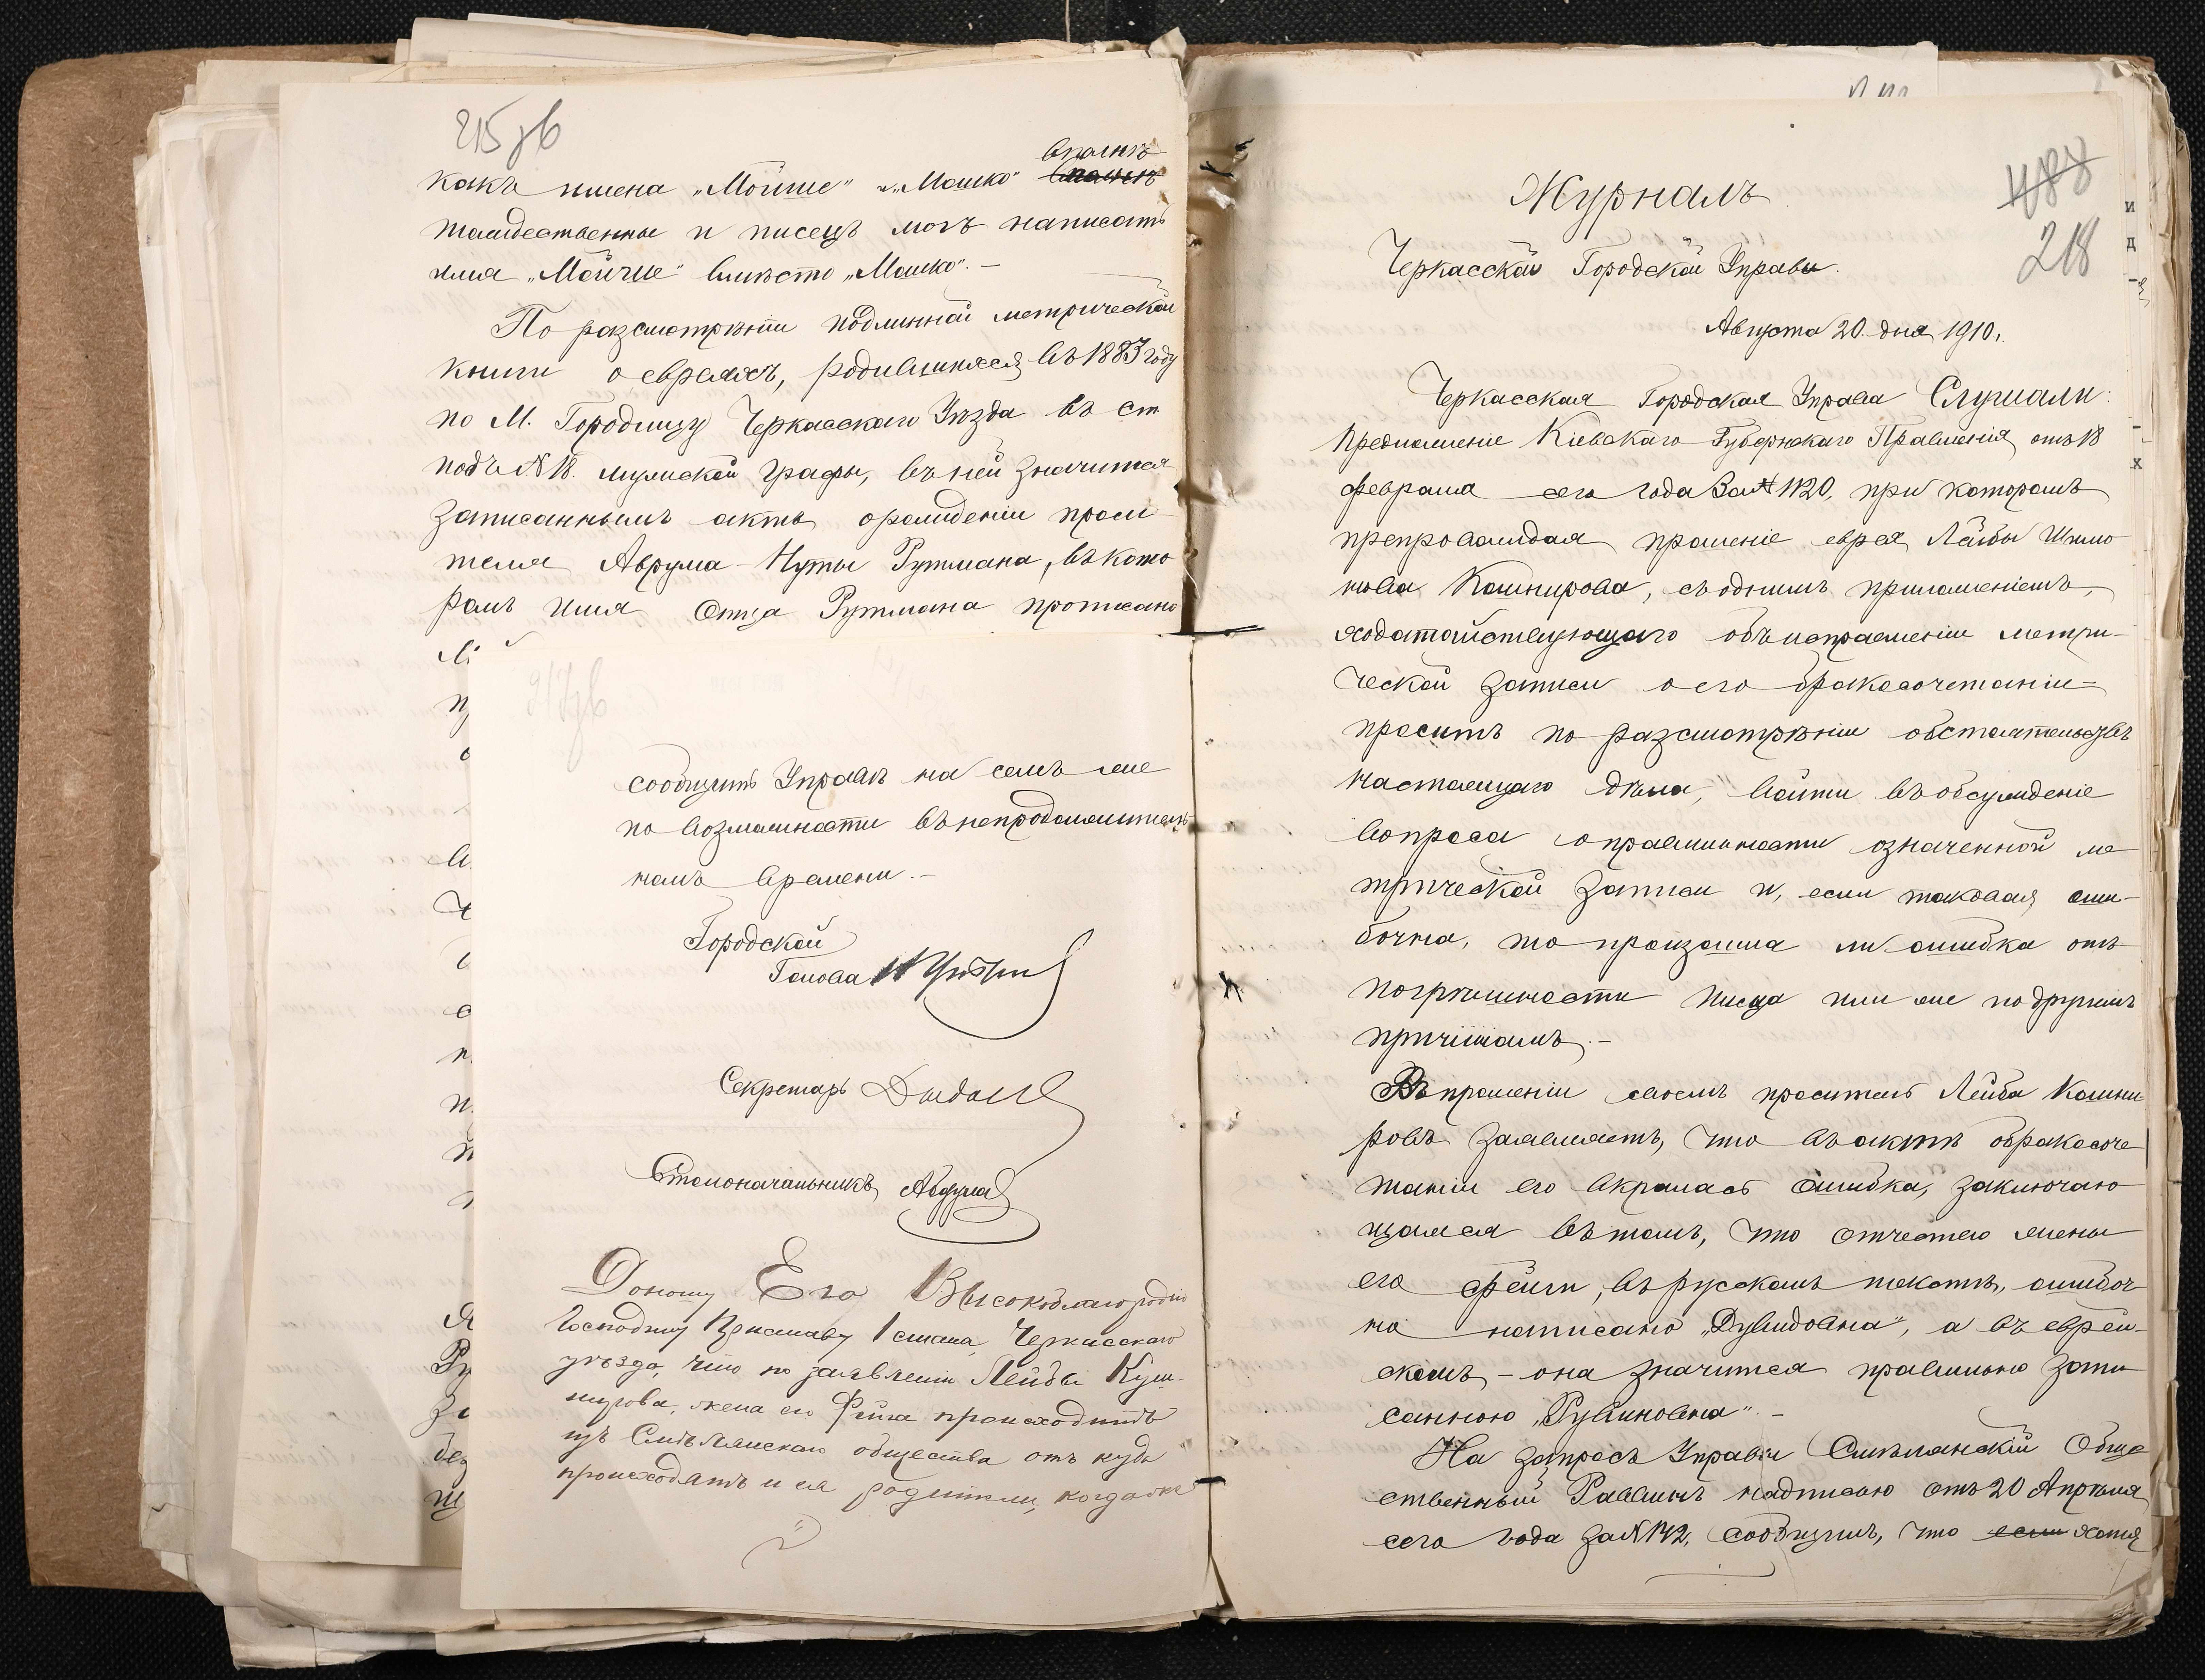 215 об
вполнѣ
какъ имена „Мойше" и „Мошко"
тождественны и писецъ могъ написать
имя „Мойше" вмѣсто „Мошко". —
По разсмотрѣніи подлинной метрической
книги о евреяхъ, родившихся въ 1883 году
по М. Городищу Черкасскаго Уѣзда въ ст.
подъ № 18. мужской графы, въ ней значится
записаннымъ актъ о рожденіи проси-
теля Аврума-Нуты Рутмана, въ кото-
ромъ имя отца Рутмана прописано
217 об
сообщить Управѣ на семъ же
по возможности въ непродолжитель-
номъ времени. —
Городской
Голова
Секретарь
Столоначальникъ
Доношу Его Высокоблагородію
Господину Приставу 1 стана Черкасскаго
уѣзда, что по заявленію Лейбы Куш-
нирова, жена его Фейга происходитъ
изъ Смѣлянскаго общества отъ куда
происходятъ и ея родители, когда же
488
218
Журналъ
Черкасской Городской Управы.
Августа 20 дня 1910 г.
Черкасская Городская Управа Слушали:
Предложеніе Кіевскаго Губернскаго Правленія отъ 18
февраля сего года за № 1120, при которомъ
препровождая прошеніе еврея Лейбы Шимо-
нова Кошнирова, съ однимъ приложеніемъ,
ходатайствующаго объ исправленіи метри-
ческой записи о его бракосочетаніи —
проситъ по разсмотрѣніи обстоятельствъ
настоящаго дѣла, войти въ обсужденіе
вопроса о правильности означенной ме-
трической записи и, если таковая оши-
бочна, то произошла ли ошибка отъ
погрѣшности писца или же по другимъ
причинамъ. —
Въ прошеніи своемъ проситель Лейба Кошни-
ровъ заявляетъ, что въ актѣ о бракосоче-
таніи его вкралась ошибка, заключаю-
щаяся въ томъ, что отчество жены
его Фейги, въ русскомъ текстѣ, ошибоч-
но написано „Дувидовна", а въ еврей-
скомъ — она значится правильно запи-
санною „Рувиновна". —
На запросъ Управы Смѣлянскій Обще-
ственный Раввинъ надписью отъ 20 Апрѣля
сего года за № 142, сообщилъ, что если хотя